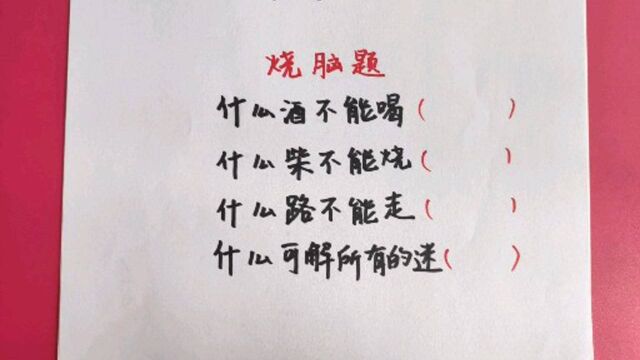 烧脑题
什么酒不能喝（ ）
什么柴不能烧（ ）
什么路不能走（ ）
什么可解所有的迷（ ）